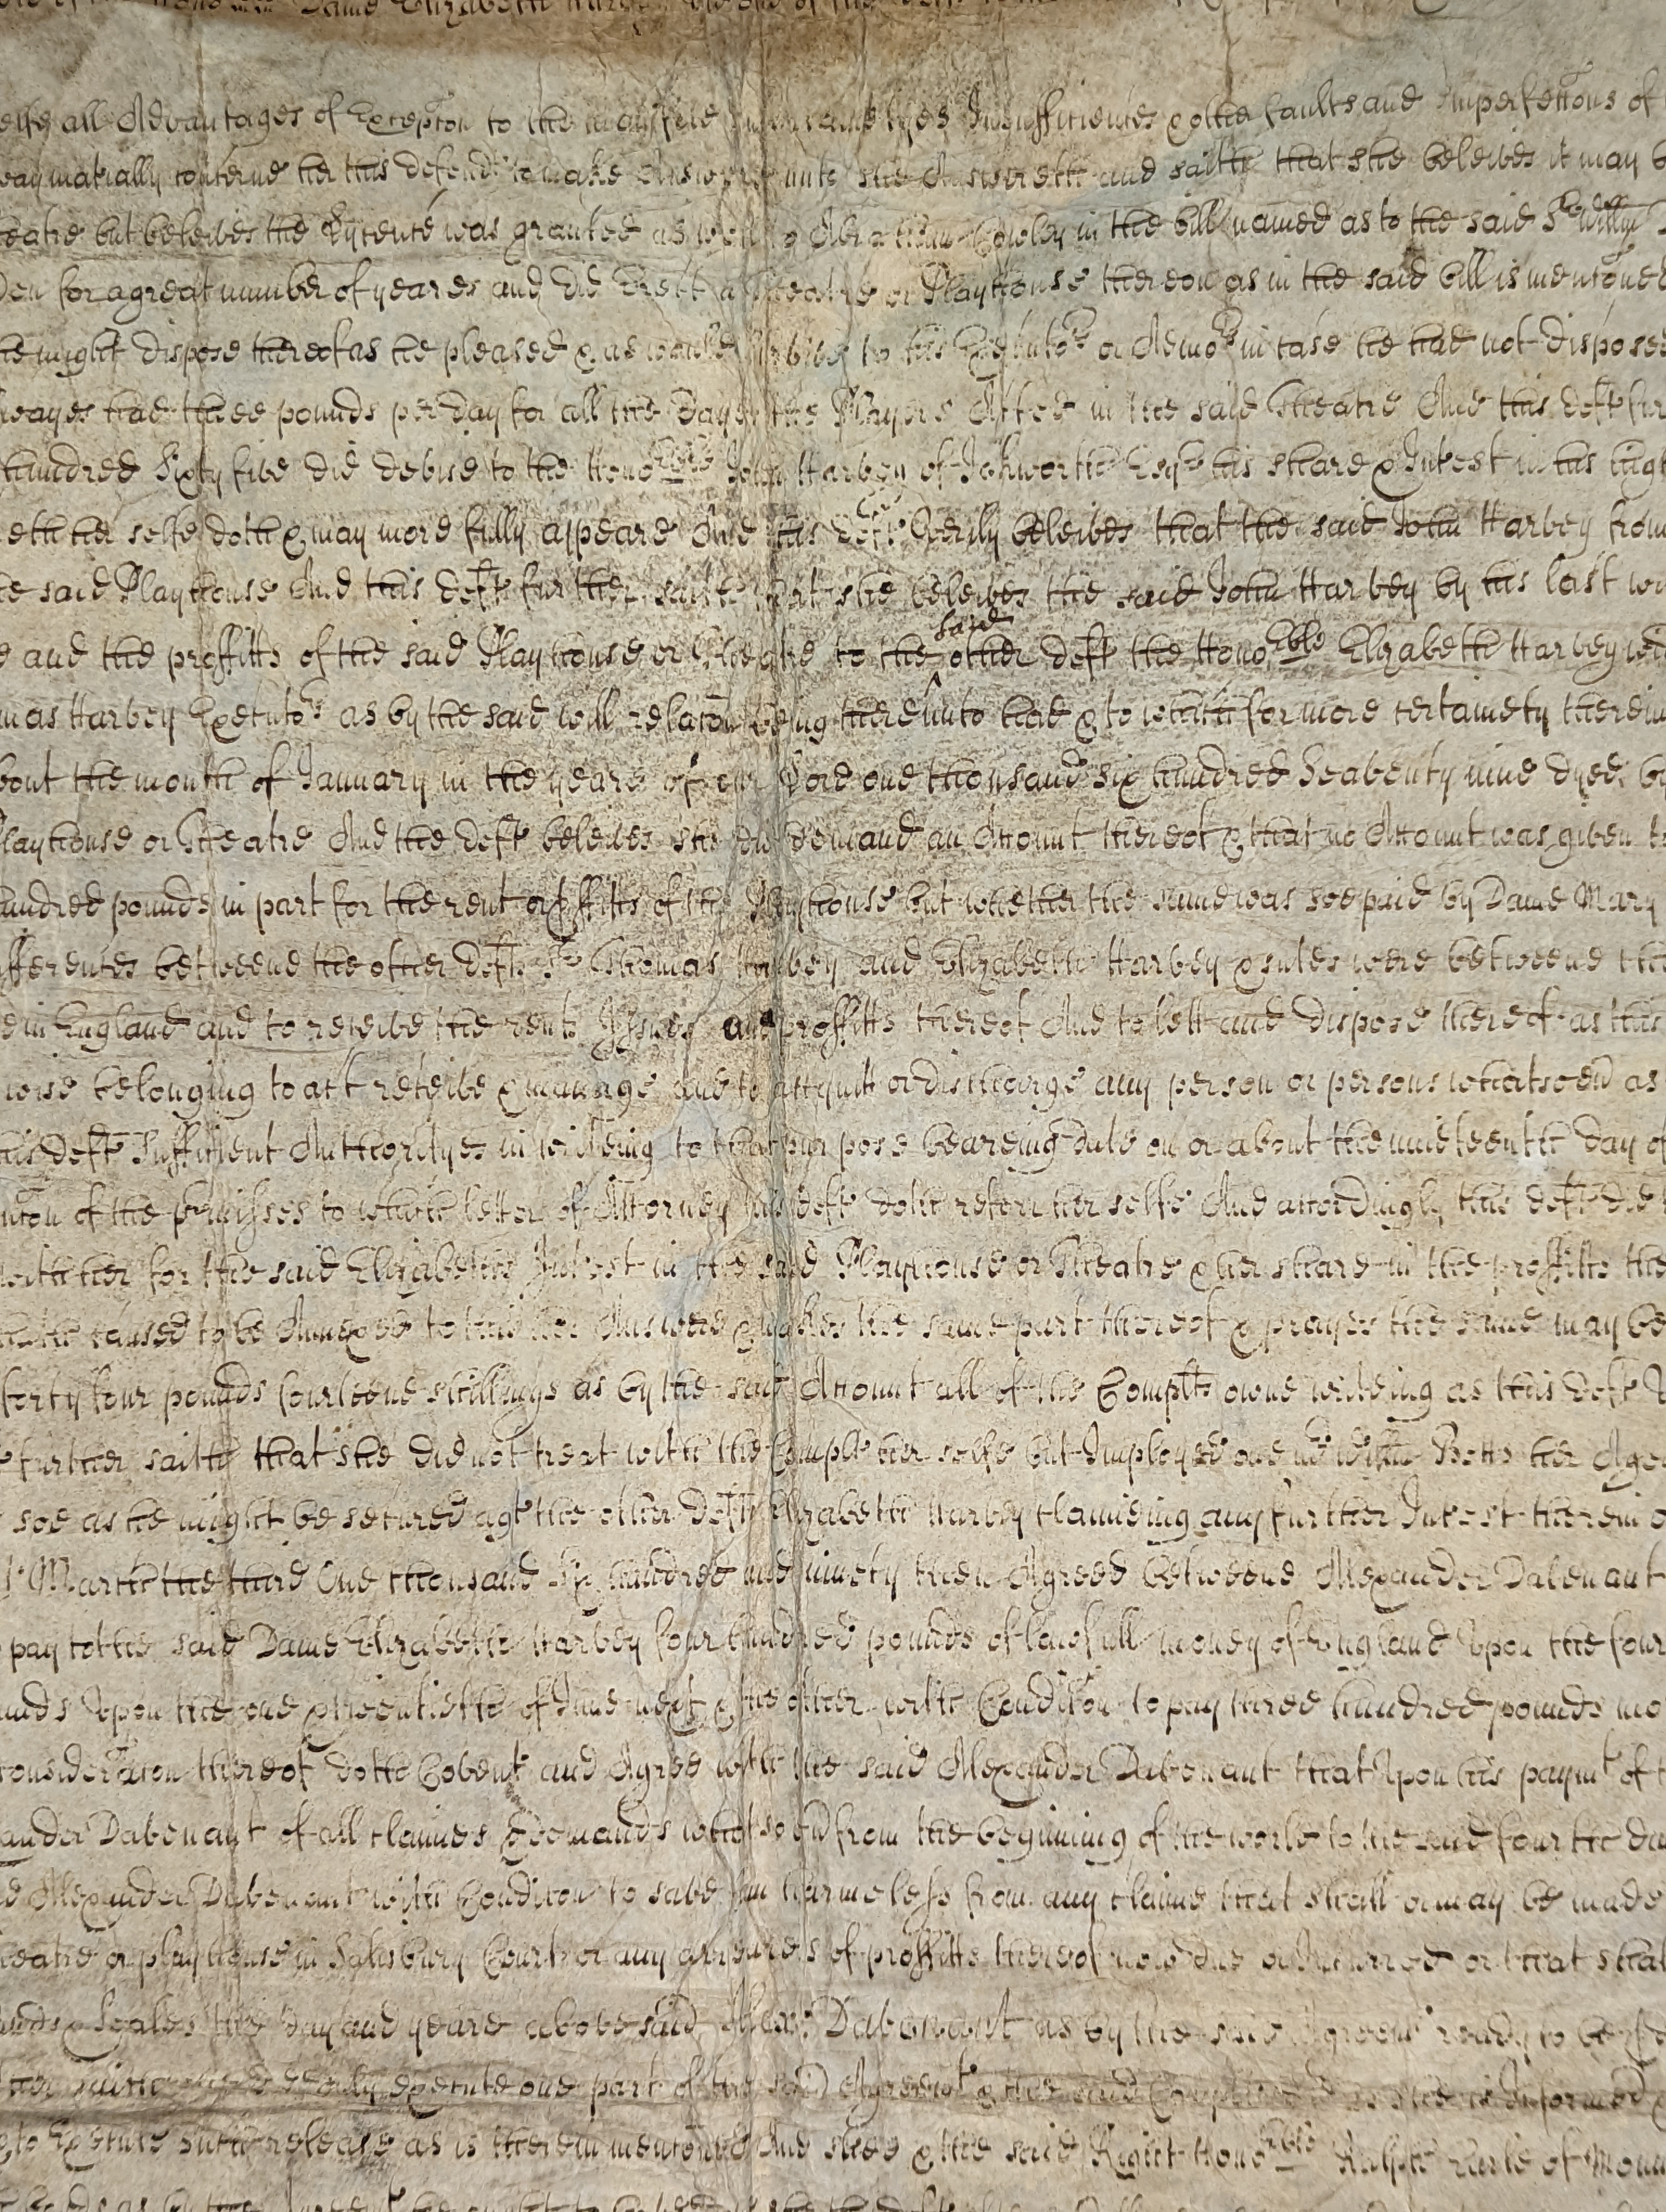 Dame Elizabeth
all Advantages of Excepcon to the manifold Incertaintyes Insufficiencies & other faults and Imperfections of
materially concerne her this defend:t to make Answere unto she Answereth and saith that she beleives it may
but beleives the Lycence was granted as well to Abraham Cowley in the bill named as to the said S:r Willm
for a great number of yeares and did Erect a Theatre or Playhouse thereon as in the said bill is menconed
he might dispose thereof as he pleased & as would to his Executo:rs or Admo:rs in case he had not disposed
had three pounds per day for all the dayes the Players Acted in the said Theatre And this Deft fur
hundred Sixty five did devise to the Hono:rble John Harvey of Ickworth Esq:r his share & Interest in his
her selfe doth & may more fully appeare And this Deft Verily beleives that the said John Harvey from
said Playhouse And this Deft further saith that she beleives the said John Harvey by his last
and the proffitts of the said Playhouse or Theatre to the said other Deft the Hono:rble Elizabeth Harvey
Harvey Executo:rs as by the said will relacon being thereunto had & to which for more certainety therein
the month of January in the yeare of our Lord one thousand six hundred Seaventy nine dyed
Playhouse or Theatre And the Deft beleives she did demand an Account thereof & that no Account was given
hundred pounds in part for the rent or proffitts of the Playhouse but whether the same was soe paid by Dame Mary
betweene the other Defts S:r Thomas Harvey and Elizabeth Harvey & suites were betweene
in England and to receive the rents Issues and proffitts thereof And to lett and dispose thereof as this
wise belonging to act receive & manage and to acquitt or discharge any person or persons whatsoev:r as
this Deft Sufficient Authorityes in writeing to that purpose beareing date on or about the nineteenth day of
of the p:rmisses to which letter of Attorney this Deft doth referr her selfe And accordingly this Deft did
her for the said Elizabeths Interest in the said Playhouse or Theatre & her share in the proffitts
caused to be Annexed to this her Answere & makes the same part thereof & prayes the same may be
forty four pounds fourteene shillings as by the said Account all of the Complts owne writeing as this Deft
further saith that she did not treat with the Complt her selfe but Imployed one M:r Willm Betts her
soe as he might be secured ag:t the other Deft Elizabeth Harvey claimeing any further Interest therein
March the third One thousand Six hundred and ninety then Agreed betweene Alexander Davenant
pay to the said Dame Elizabeth Harvey four hundred pounds of lawfull money of England Upon the
Upon the one & twentieth of June next & the other with Condicon to pay three hundred pounds
Consideracon thereof doth Coven:t and Agree with the said Alexander Davenant that Upon his paym:t of
Davenant of all claimes & demands whatsoev:r from the beginning of the world to the said fourth
Alexander Davenant with Condicon to save him harmelesse from any claime that shall or may be made
or playhouse in Salisbury Court or any arreares of proffitts thereof now due or Incurred or that
Seales the day and yeare abovesaid Alex:r Davenant as by the said Agreem:t ready to be
execute one part of the said Agreem:t & the said Complt as she is Informed
to Execute such release as is therein menconed And shee & the said Right Hono:rble Ralph Earle of